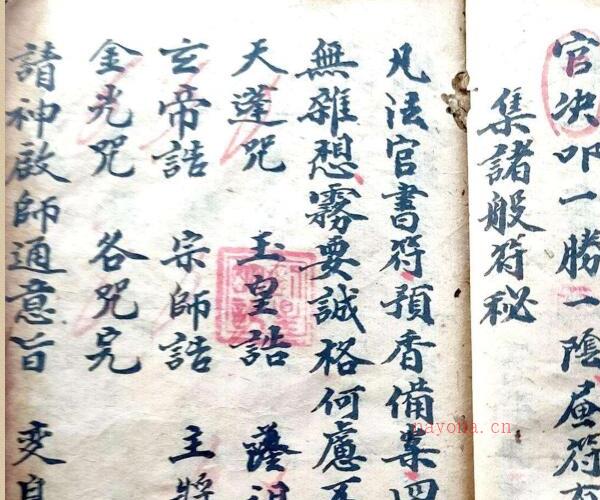 官决叩一勝一陰
符
集諸般符秘
凡法官書符預香備案
無雜想霧要誠格何慮
天蓬咒 玉皇誥
玄帝誥 宗師誥 主將
金光咒 各咒完
請神啟師通意旨 变身
nayona.cn